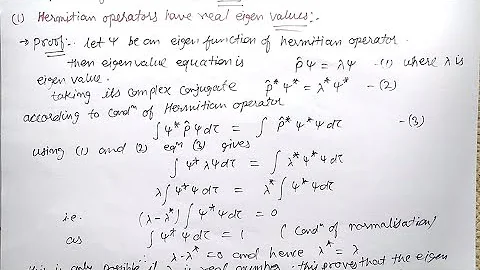 (1) Hermitian operators have real eigen values:-
→ Proof:- let Ψ be an eigen function of hermitian operator.
then eigenvalue equation is P̂Ψ = λΨ -(1) where λ is
eigen value.
taking its complex conjugate P̂*Ψ* = λ*Ψ* -(2)
according to condⁿ of Hermitian operator
∫Ψ* P̂Ψdτ = ∫ P̂*Ψ*Ψdτ -(3)
using (1) and (2) eqⁿ (3) gives
∫Ψ* λΨdτ = ∫λ*Ψ*Ψdτ
λ∫Ψ*Ψdτ = λ*∫Ψ*Ψdτ
i.e. (λ-λ*)∫Ψ*Ψdτ = 0
as ∫Ψ*Ψdτ = 1 (condⁿ of normalisation)
λ-λ* = 0 and hence λ* = λ
this is only possible if λ is real number. this proves that the eigen